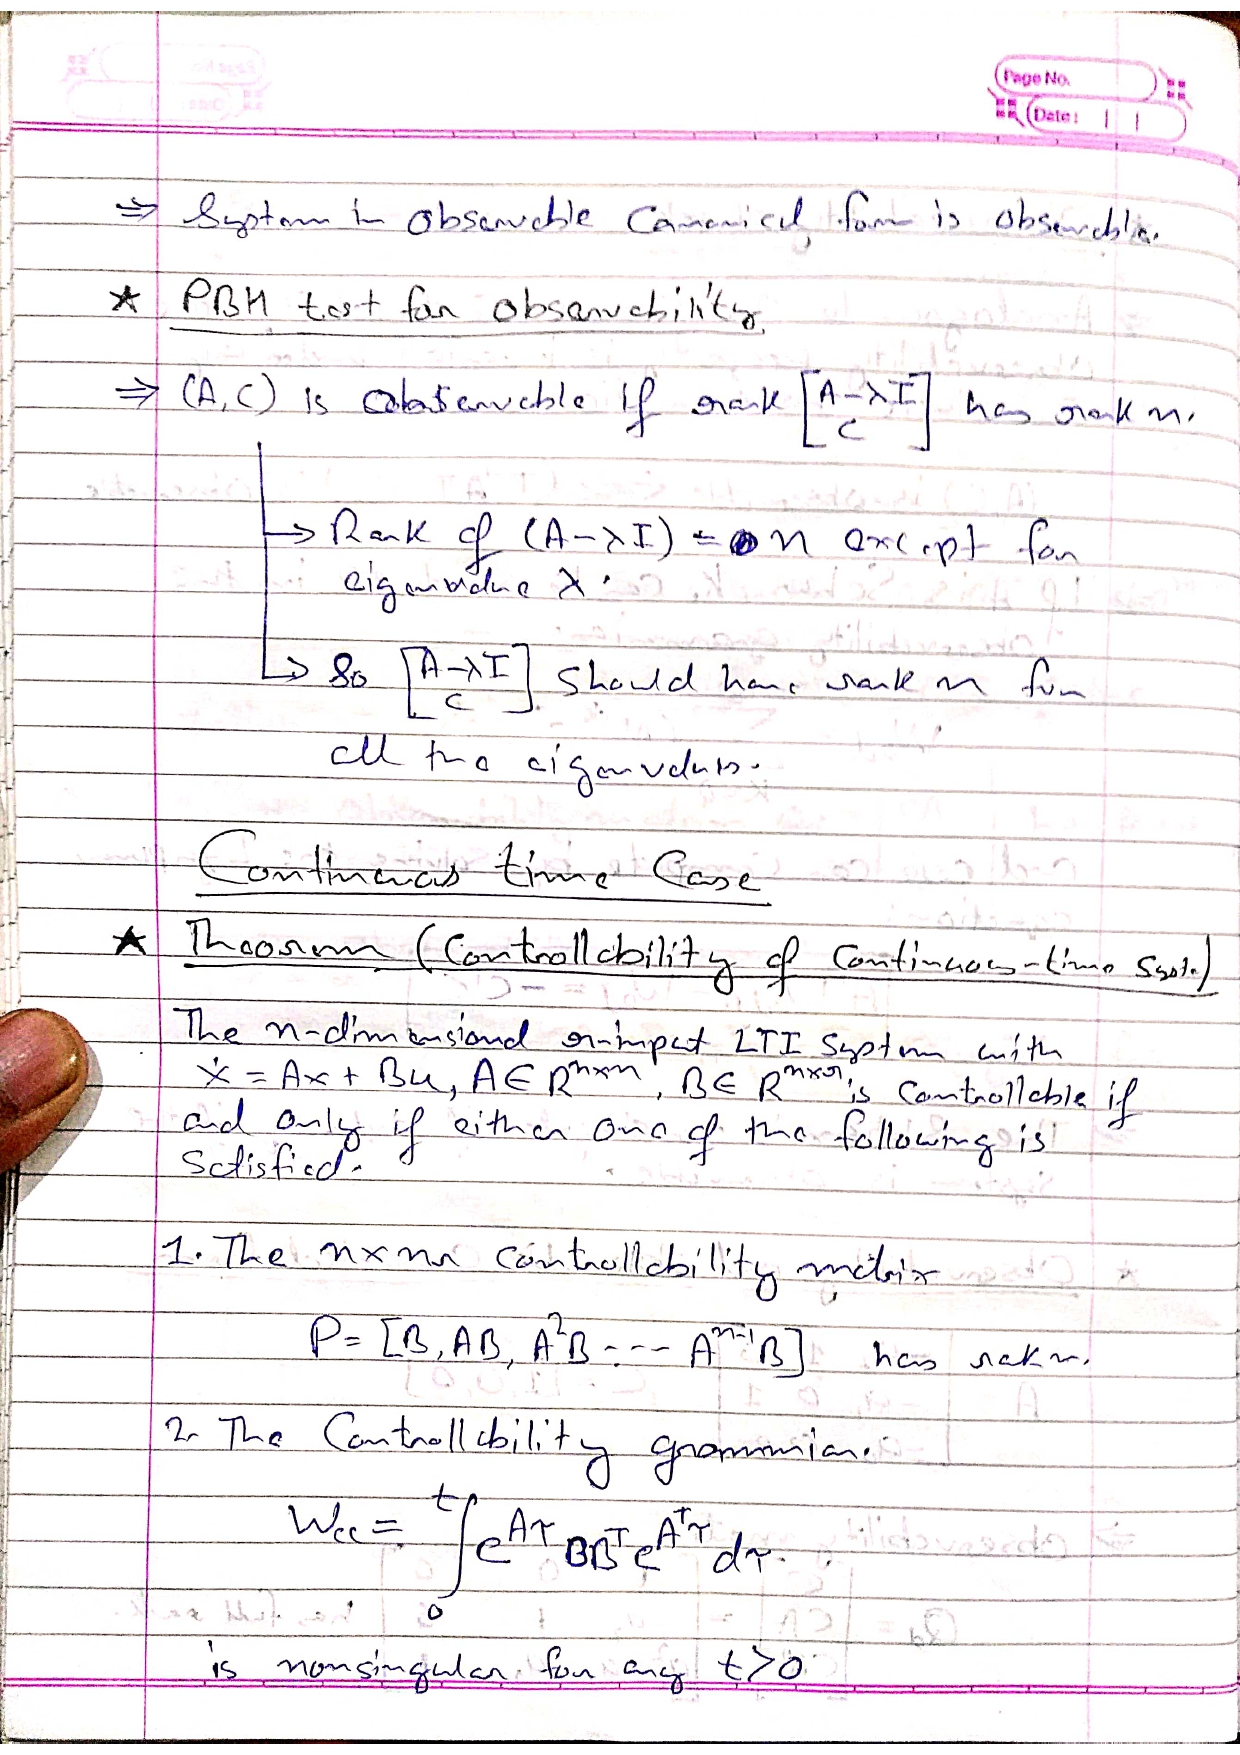 Page No.
Date:
⇒ System in observable Canonical form is observable.
★ PBH test for observability.
⇒ (A,C) is observable if rank [A-λI; C] has rank n.
→ Rank of (A-λI) = n except for
eigenvalue λ.
→ So [A-λI; C] should have rank n for
all the eigenvalues.
Continuous time Case
★ Theorem (Controllability of Continuous-time Syst.)
The n-dimensional r-input LTI System with
ẋ = Ax + Bu, A∈R^{n×n}, B∈R^{n×r}, is Controllable if
and only if either one of the following is
Satisfied.
1. The n×nr controllability matrix
P = [B, AB, A²B ---- A^{n-1}B] has rak n.
2. The Controllability grammian.
Wcc = ∫₀ᵗ e^{Aτ} BBᵀ e^{Aᵀτ} dτ.
is nonsingular for any t>0